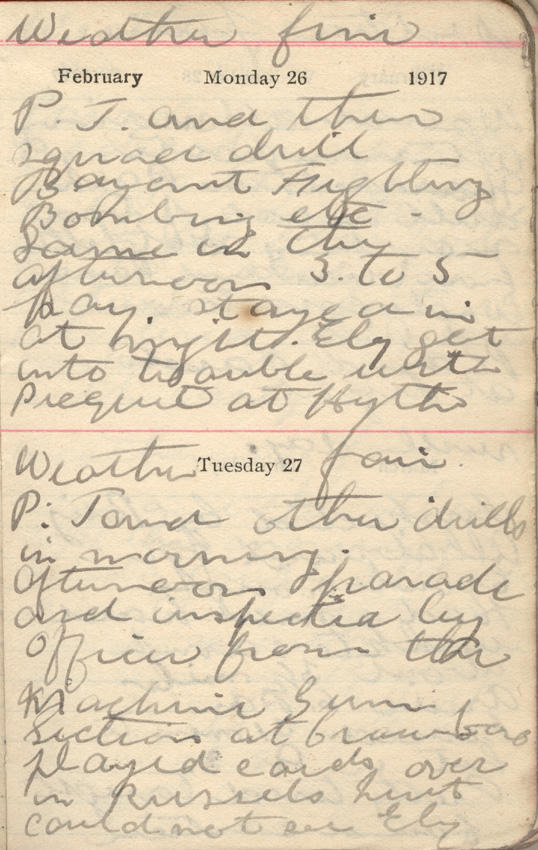 Weather fine
February Monday 26 1917
P. T. and then
squad drill
Bayonet Fighting
Bombing etc -
Same in the
afternoon 3. to 5
pay. stayed in
at night. Ely got
into trouble with
Picquit at Hythe
Weather fair
Tuesday 27
P. T and other drills
in morning.
afternoon parade
and inspectia by
Officer from the
Machine Gunn
Section at
played cards over
in Russels hut
could not see Ely